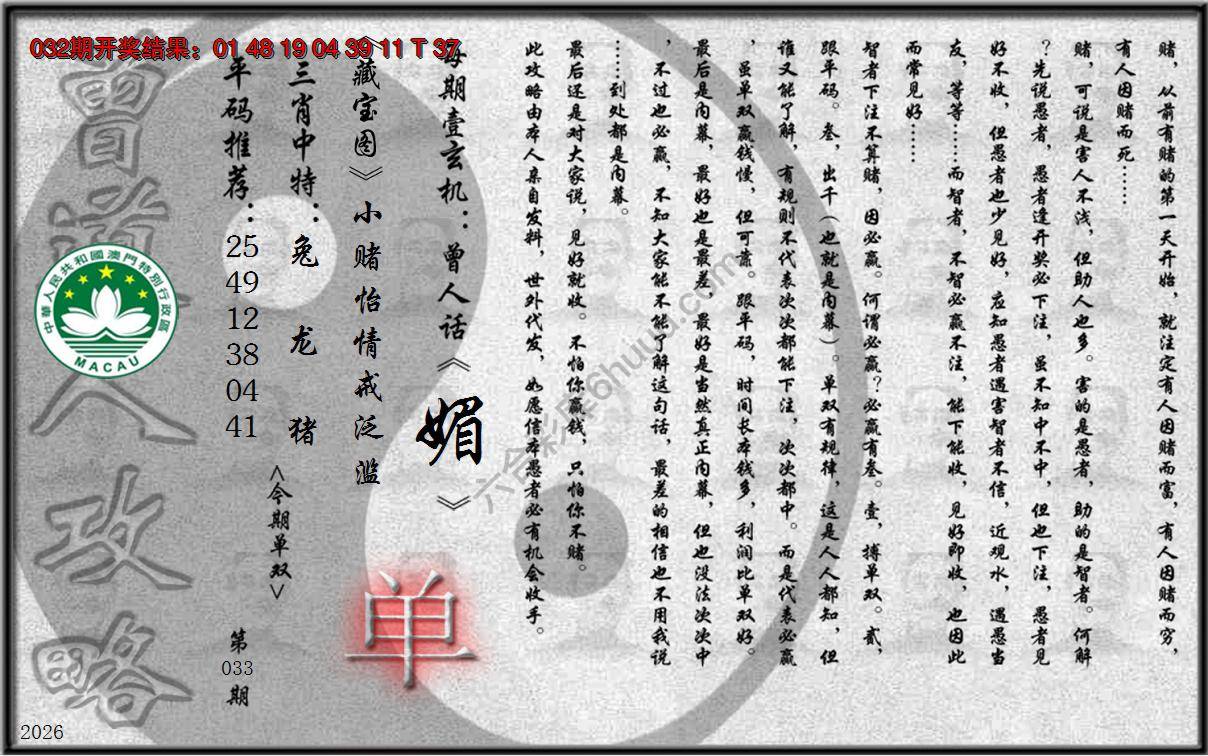 032期开奖结果：01 48 19 04 39 11 T 37
赌，从前有赌的第一天开始，就注定有人因赌而富，有人因赌而穷，
有人因赌而死……
赌，可说是害人不浅，但助人也多。害的是愚者，助的是智者。何解
？先说愚者，愚者逢开奖必下注，虽不知中不中，但也下注，愚者见
好不收，但愚者也少见好，应知愚者遇害智者不信，近观水，遇愚当
友，等等……而智者，不智必赢不注，能下能收，见好即收，也因此
而常见好……
智者下注不算赌，因必赢。何谓必赢？必赢有叁。壹，搏单双。贰，
跟平码。叁，出千（也就是内幕）。单双有规律，这是人人都知，但
谁又能了解，有规则不代表次次都能下注，次次都中。而是代表必赢
，虽单双赢钱慢，但可靠。跟平码，时间长本钱多，利润比单双好。
最后是内幕，最好也是最差，最好是当然真正内幕，但也没法次次中
，不过也必赢，不知大家能不能了解这句话，最差的相信也不用我说
……到处都是内幕。
最后还是对大家说，见好就收。不怕你赢钱，只怕你不赌。
此攻略由本人亲自发料，世外代发，如愿信本愚者必有机会收手。
每期壹玄机：曾人话《媚》
《藏宝图》小赌怡情戒泛滥
三肖中特：兔 龙 猪
<今期单双>
单
平码推荐：
25
49
12
38
04
41
第
033
期
曾道人攻略
中華人民共和國澳門特別行政區
MACAU
六合彩库6huuu.com
2026